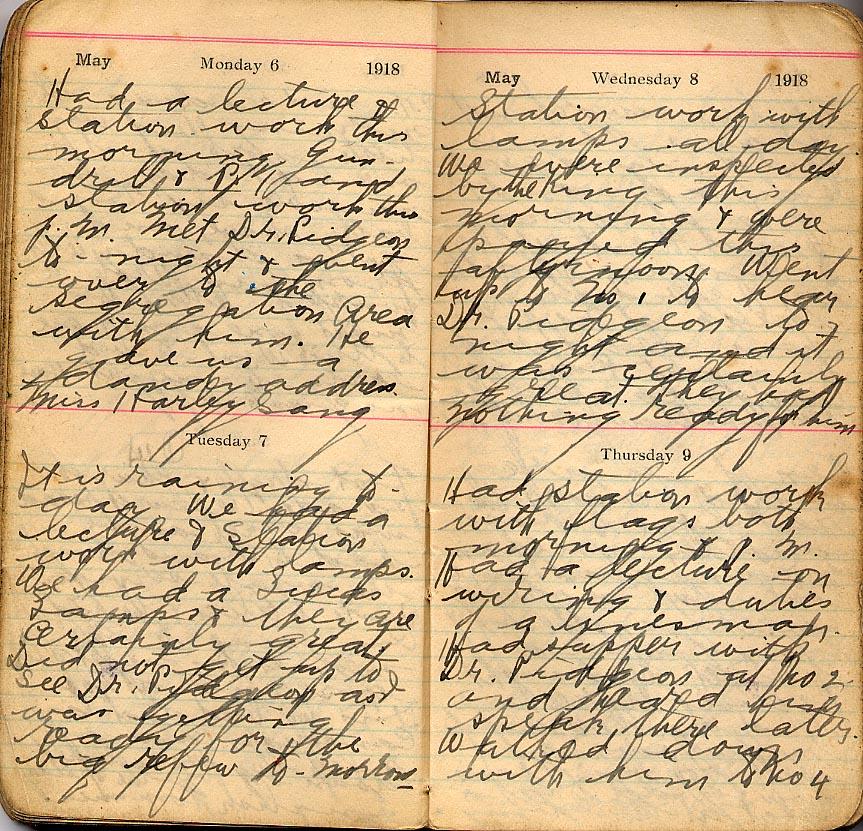 May Monday 6 1918
Had a lecture &
station work this
morning. Gun-
drill & P.T. and
station work this
p.m. Met Dr. Pidgeon
to-night & went
over to the
segregation area
with him. He
gave us a
dandy address.
Miss Harley Sang
Tuesday 7
It is raining to-
day. We had a
lecture & Station
work with lamps.
We had a
Lamps & they are
certainly great.
Did not get up to
see Dr. Pidgeon as I
was getting
ready for the
big review to-morrow
May Wednesday 8 1918
Station work with
lamps all day
We were inspected
by the King this
morning & were
this
afternoon. Went
up to No. 1 to hear
Dr. Pidgeon to-
night and it
was certainly
great. They had
nothing ready for him
Thursday 9
Had station work
with flags both
morning & p.m.
Had a lecture on
wiring & duties
of a linesman.
Had supper with
Dr. Pidgeon at No 2
and heard him
speak there later.
Walked down
with him to No 4